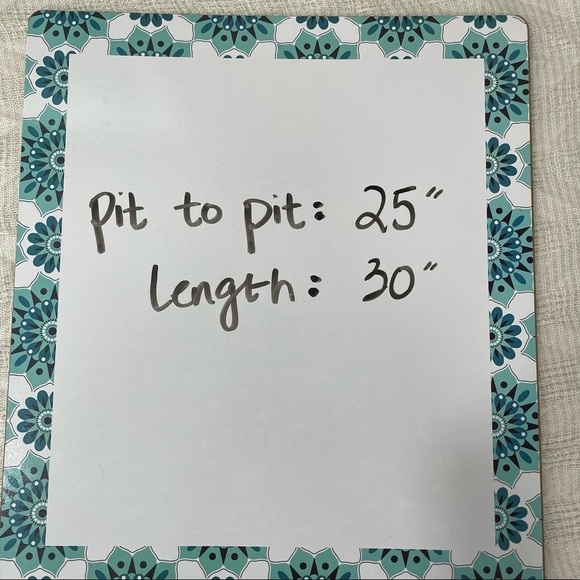 pit to pit: 25"
Length: 30"